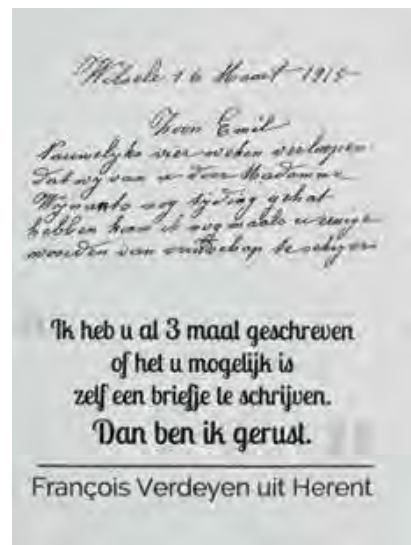 Wilsele 16 Maart 1915
Zoon Emil
Nauwelyks vier weken verloopen
Dat wy van u door Madamme
nog tyding gehat
hebben kom ik nogmaals u eenige
woorden van
Ik heb u al 3 maal geschreven
of het u mogelijk is
zelf een briefje te schrijven.
Dan ben ik gerust.
François Verdeyen uit Herent